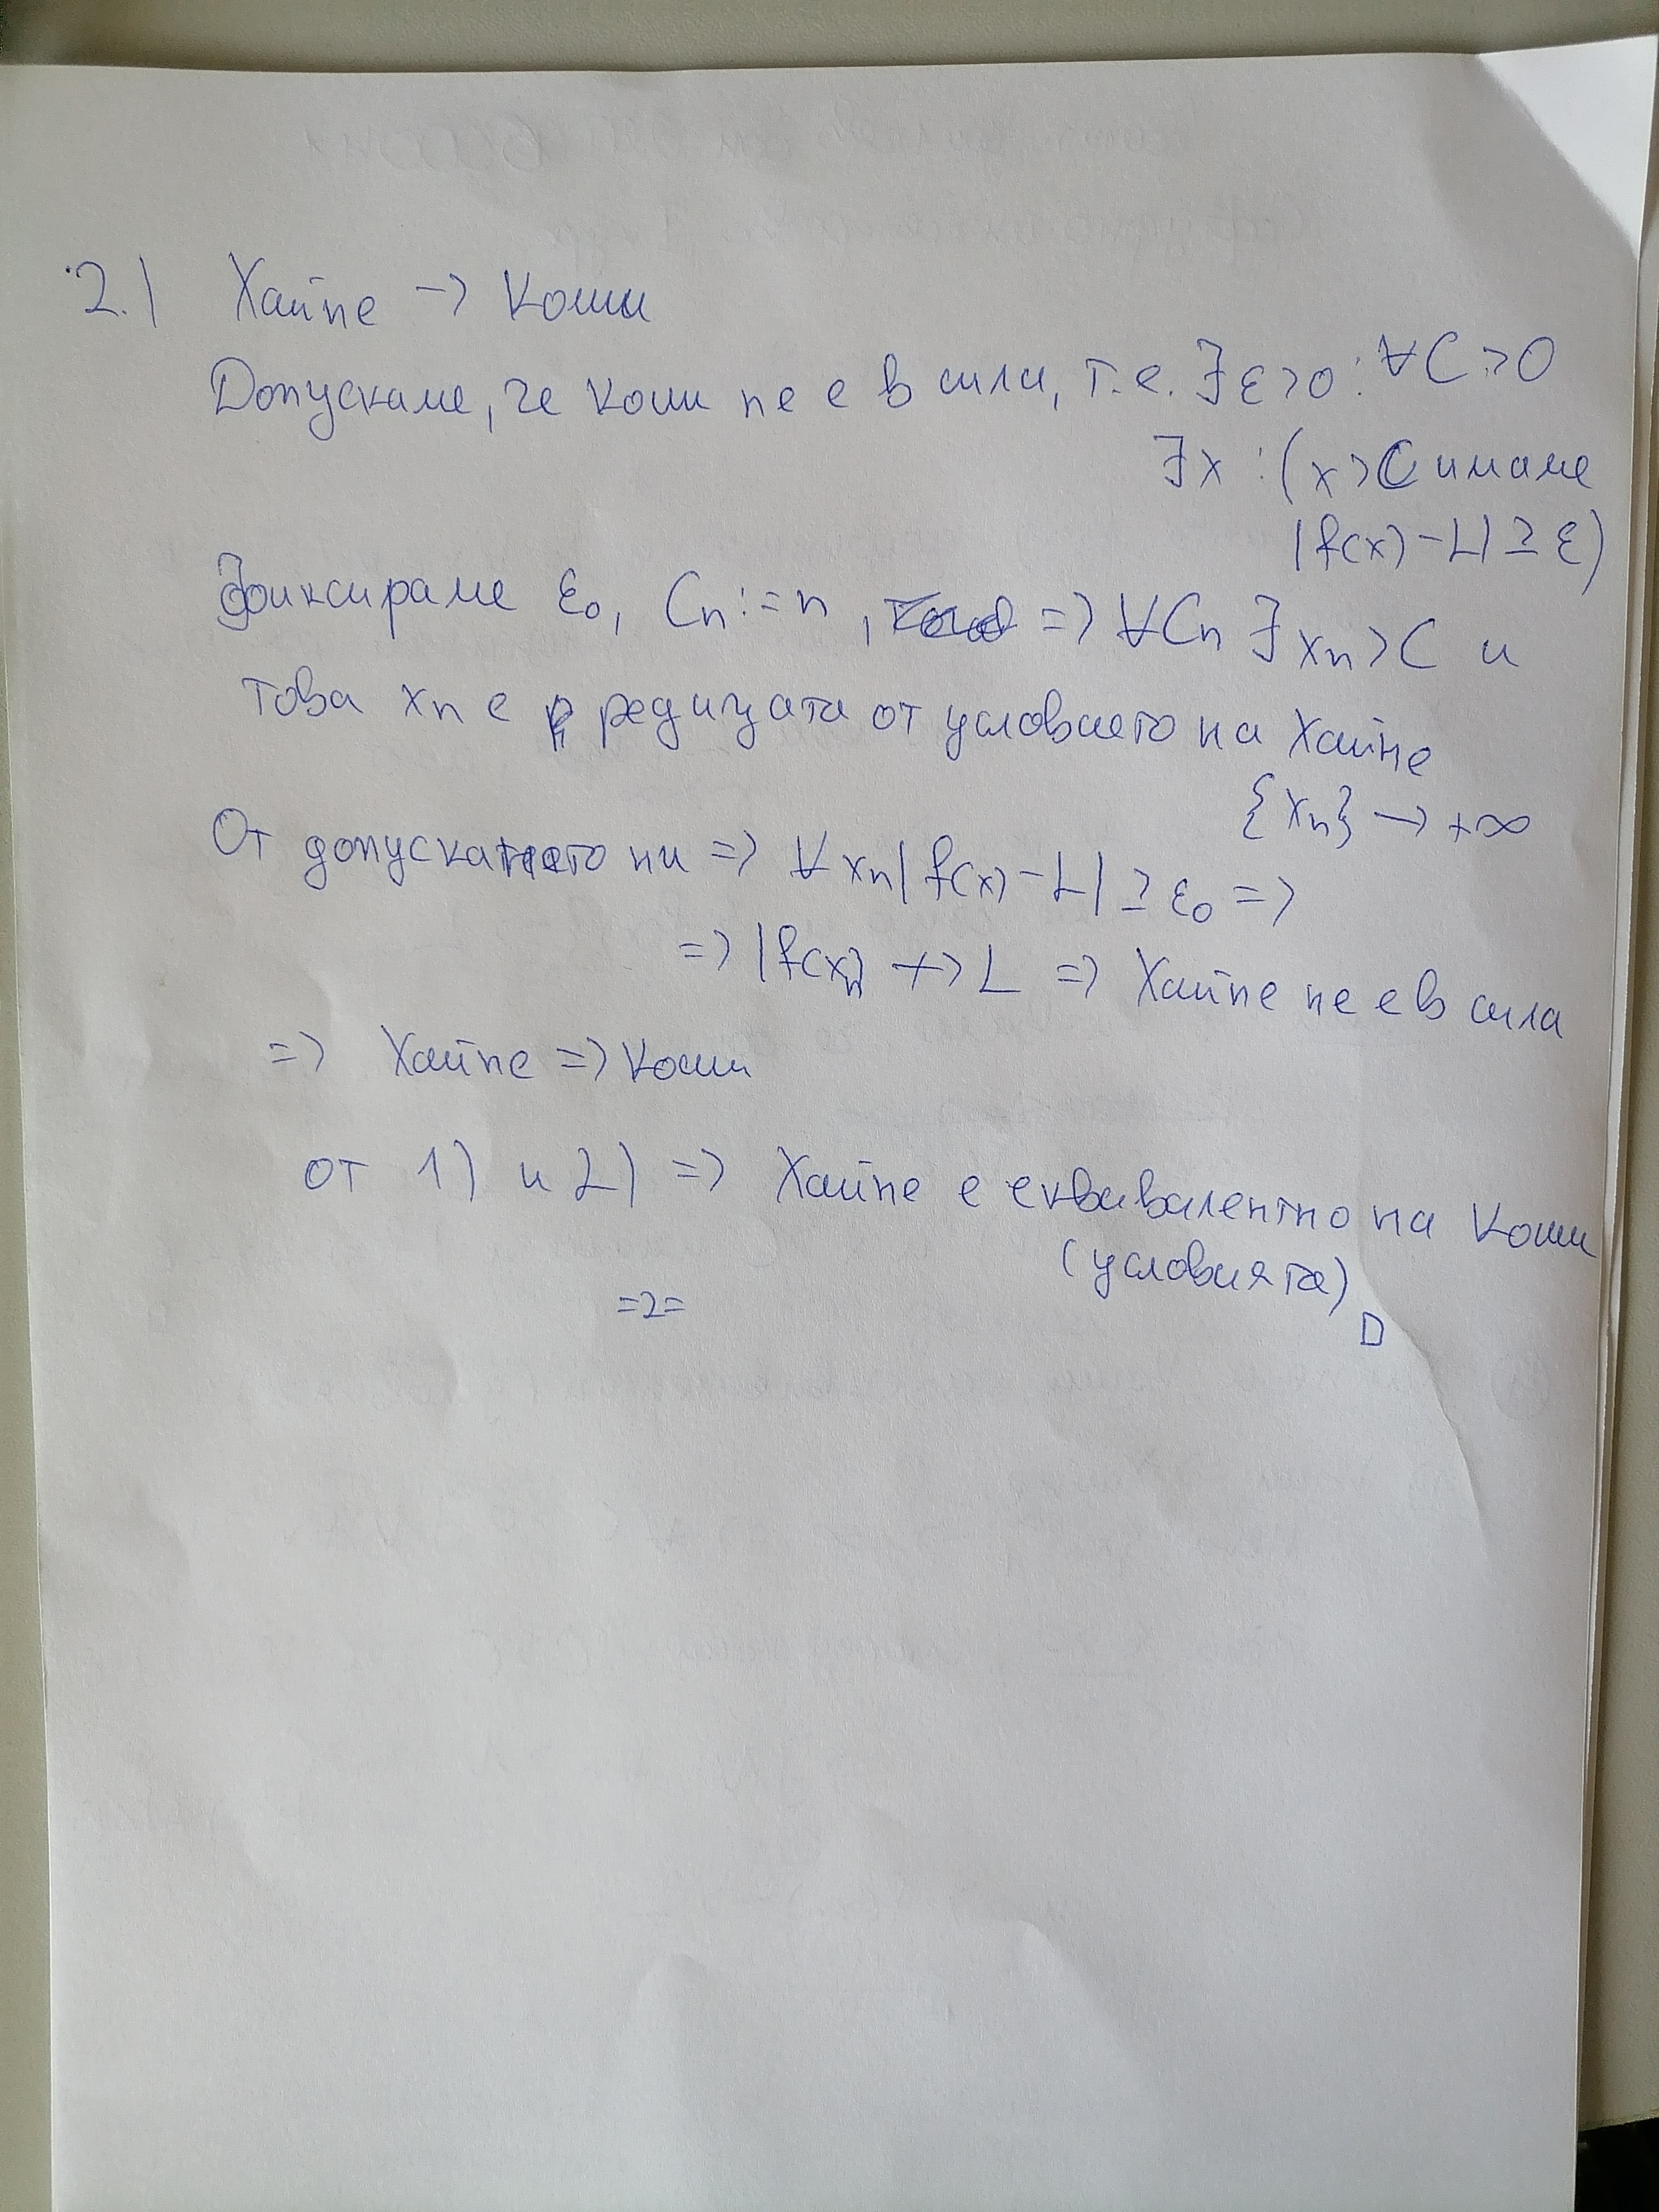 2.) Хайне -> Коши
Допускаме, че Коши не е в сила, т.е. ∃ε>0 : ∀C>0
∃x : (x>C имаме
|f(x)-L| ≥ ε)
Фиксираме ε₀, Cₙ:=n, => ∀Cₙ ∃xₙ>C и
това xₙ е редицата от условието на Хайне
{xₙ} -> +∞
От допускането ни => ∀xₙ |f(x)-L| ≥ ε₀ =>
=> |f(xₙ) ↛ L => Хайне не е в сила
=> Хайне => Коши
от 1) и 2) => Хайне е еквивалентно на Коши
(условията)
=2= □